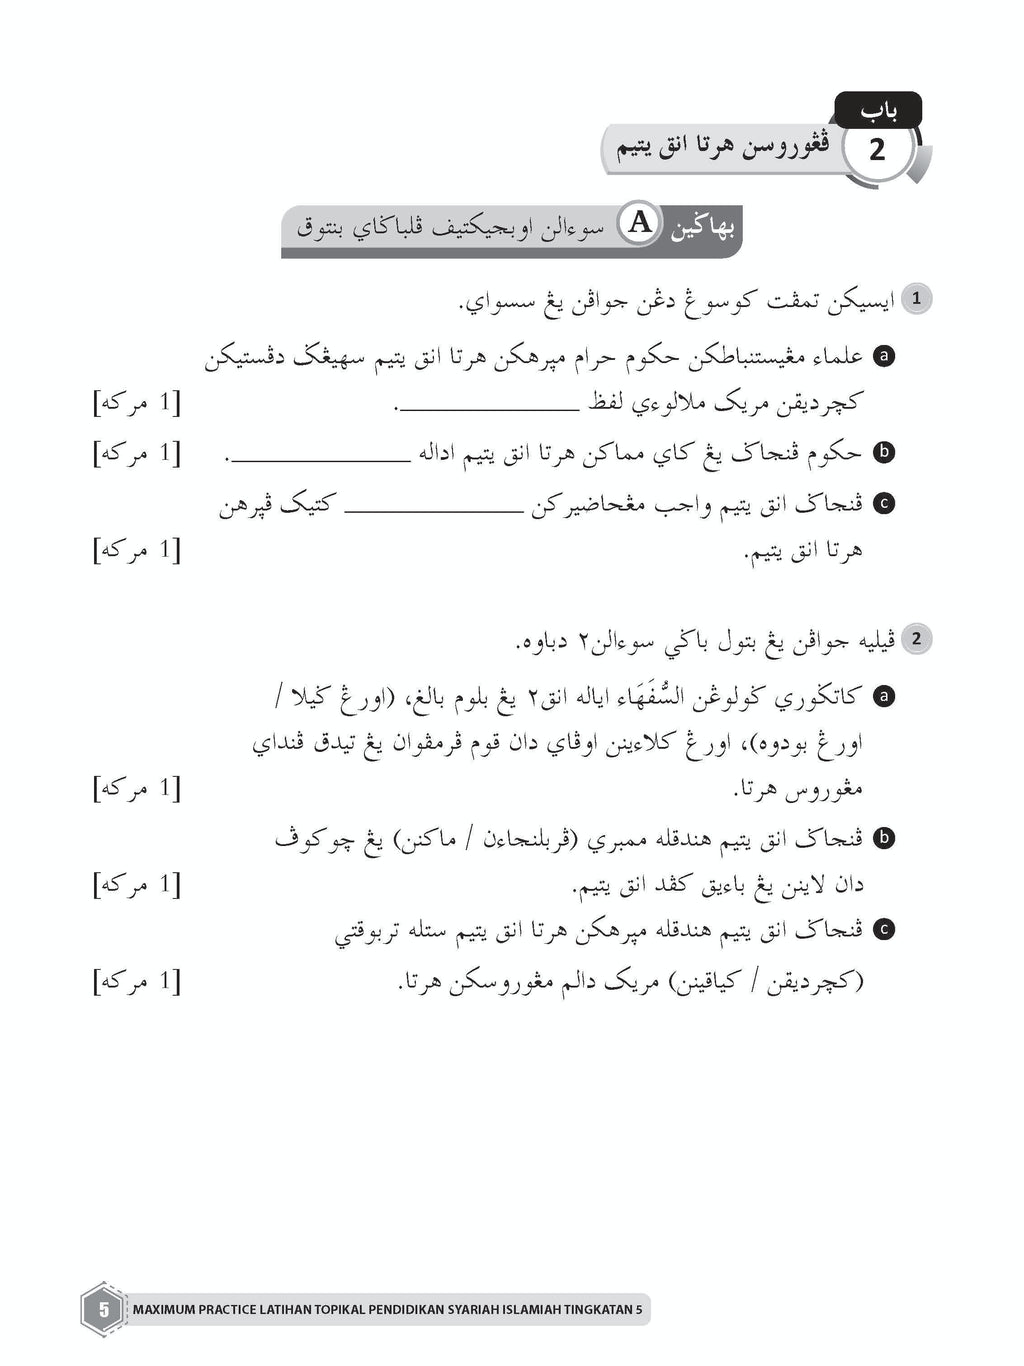 باب
2
ڤڠوروسن هرتا انق يتيم
بهاݢين A سوءالن اوبجيکتيف ڤلباݢاي بنتوق
1 ايسيکن تمڤت کوسوڠ دڠن جواڤن يڠ سسواي.
a علماء مڠيستنباطکن حکوم حرام مڽرهکن هرتا انق يتيم سهيڠݢ دڤستيکن
کچرديقن مريک ملالوءي لفظ ________________. [1 مرکه]
b حکوم ڤنجاݢ يڠ کاي مماکن هرتا انق يتيم اداله ________________. [1 مرکه]
c ڤنجاݢ انق يتيم واجب مڠحاضيرکن ________________ کتيک ڤڽرهن
هرتا انق يتيم. [1 مرکه]
2 ڤيليه جواڤن يڠ بتول باݢي سوءالن٢ دباوه.
a کاتݢوري ݢولوڠن السُّفَهَاء اياله انق٢ يڠ بلوم بالغ، (اورڠ ݢيلا /
اورڠ بودوه)، اورڠ کلاءينن اوڤاي دان قوم ڤرمڤوان يڠ تيدق ڤنداي
مڠوروس هرتا. [1 مرکه]
b ڤنجاݢ انق يتيم هندقله ممبري (ڤربلنجاءن / ماکنن) يڠ چوکوڤ
دان لاينن يڠ باءيق کڤد انق يتيم. [1 مرکه]
c ڤنجاݢ انق يتيم هندقله مڽرهکن هرتا انق يتيم ستله تربوقتي
(کچرديقن / کياقينن) مريک دالم مڠوروسکن هرتا. [1 مرکه]
5 MAXIMUM PRACTICE LATIHAN TOPIKAL PENDIDIKAN SYARIAH ISLAMIAH TINGKATAN 5